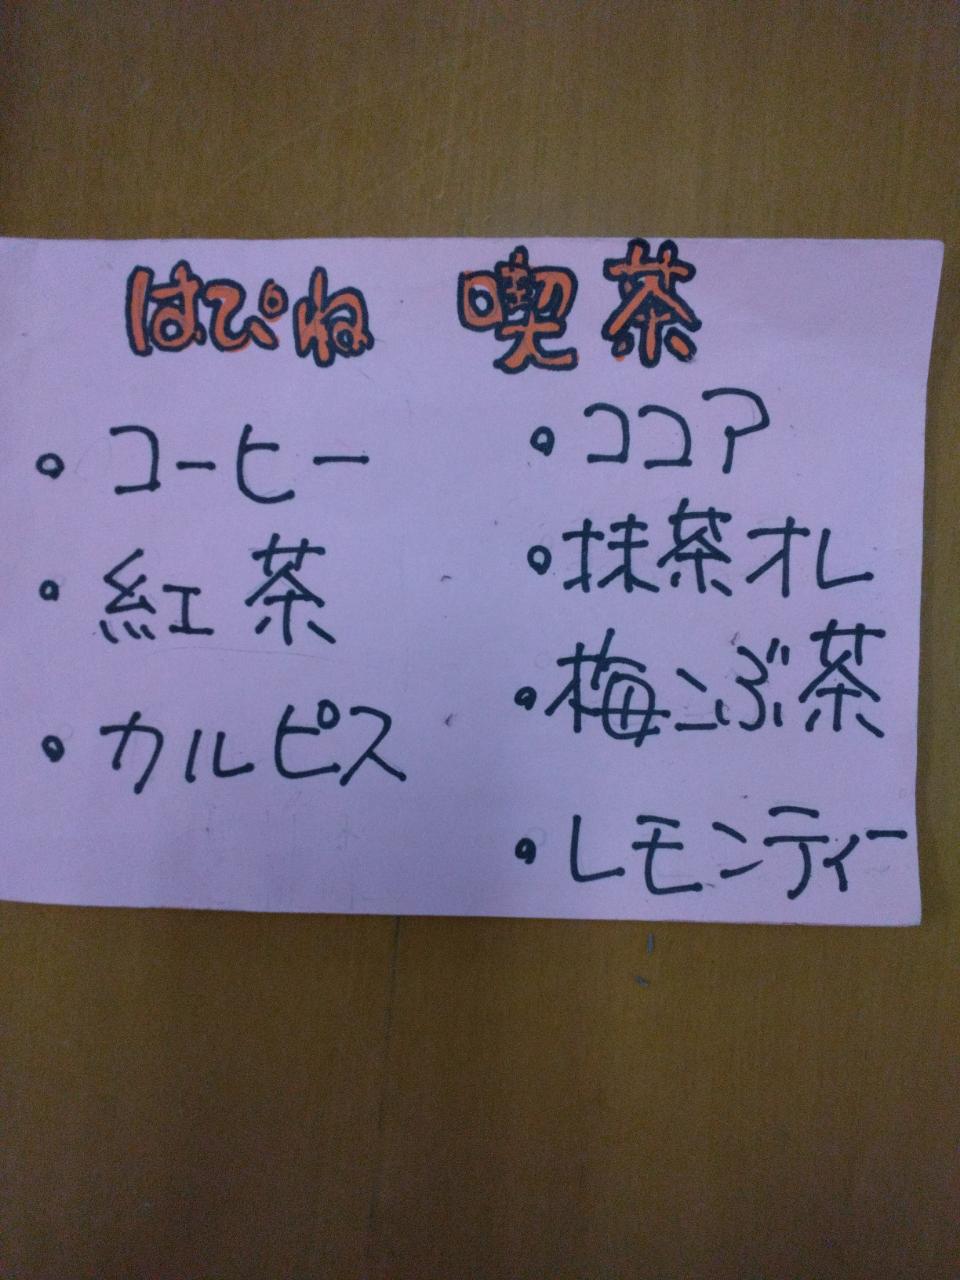 はぴね 喫茶
・コーヒー
・紅茶
・カルピス
・ココア
・抹茶オレ
・梅こぶ茶
・レモンティー